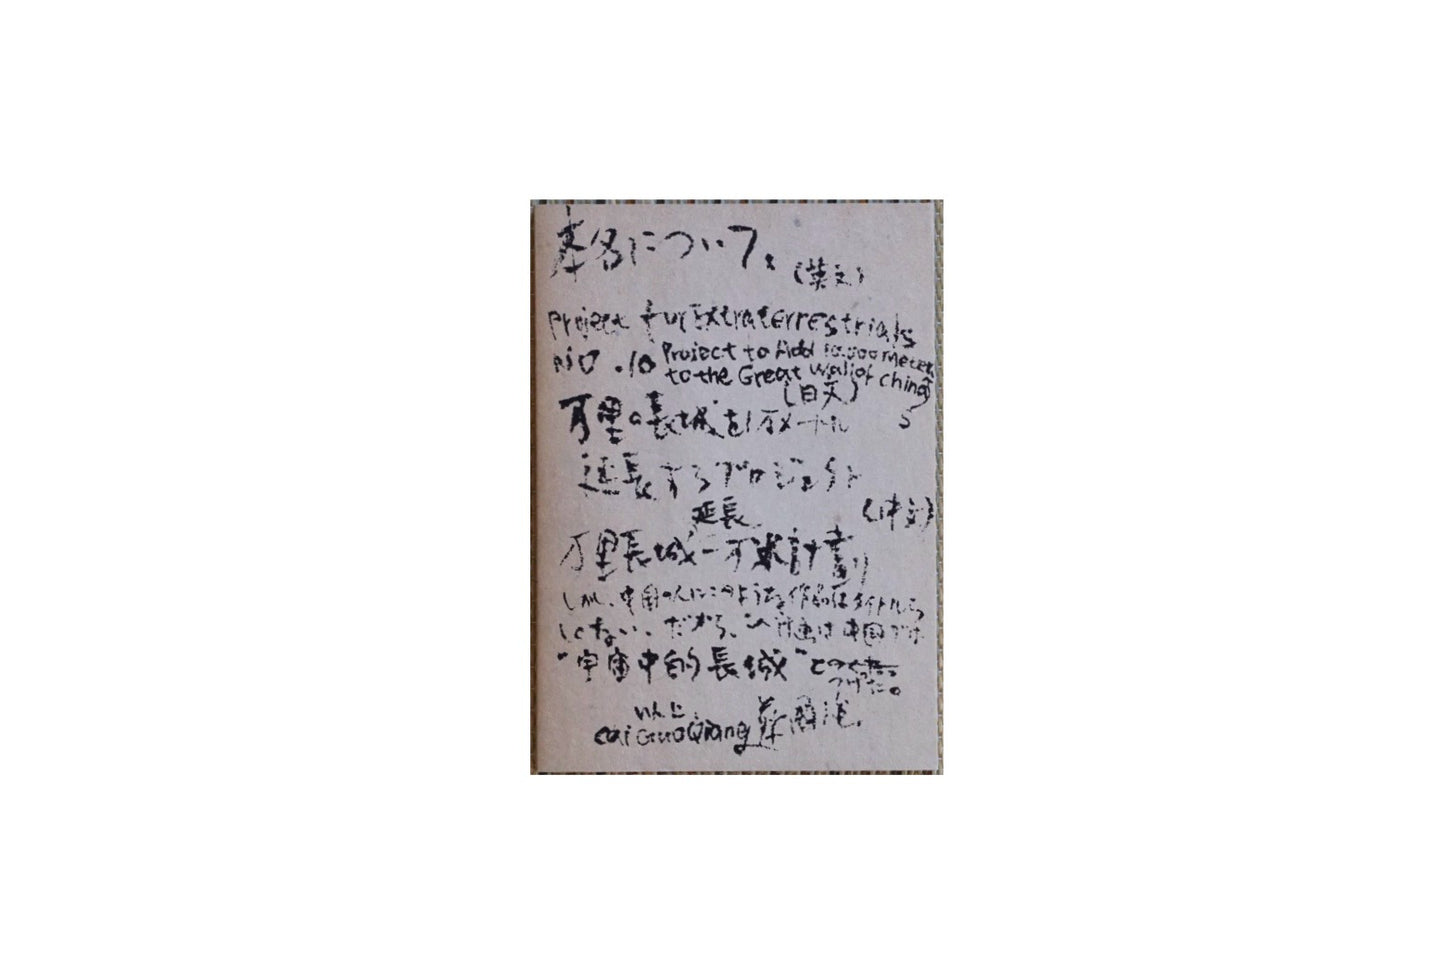 本名について。
(英文)
Project for Extraterrestrials
NO .10 Project to Add 10,000 meters
to the Great Wall of China
(日文)
万里の長城を1万メートル
延長するプロジェクト
延長 (中文)
万里長城一万米計劃
しかし、中国の人にこのような作品はタイトルら
しくない、だから、この計画は中国では
"宇宙中的長城" と
つけた。
以上
Cai Guo Qiang 蔡國強